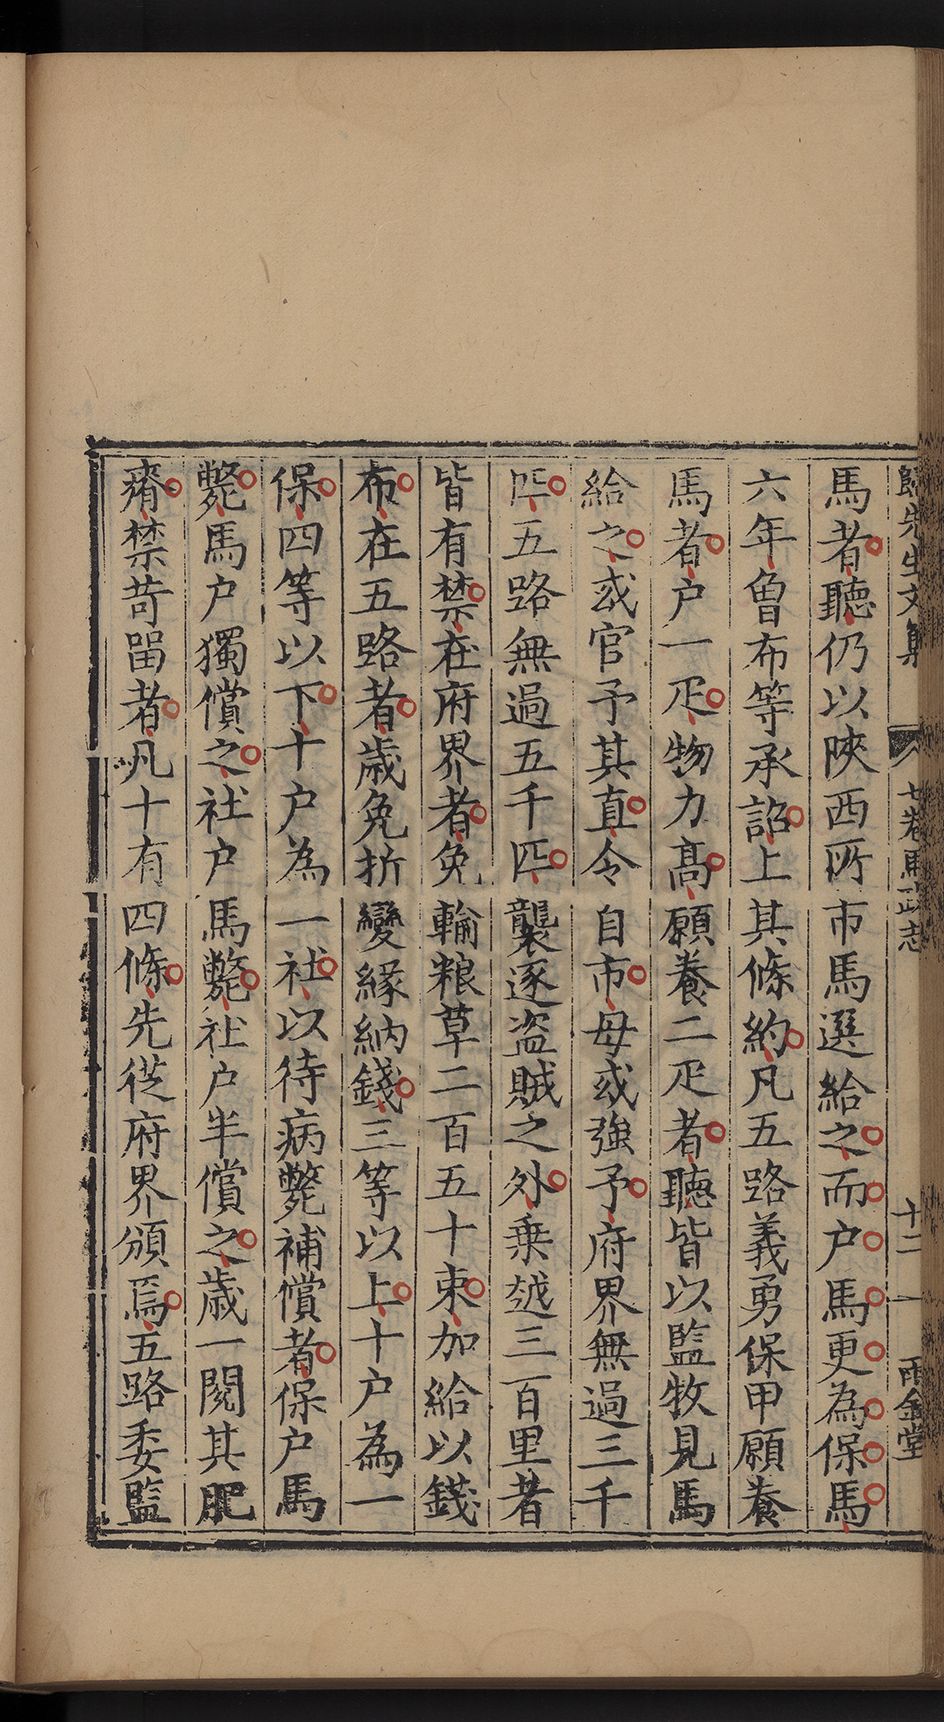 歸先生文集 七卷馬政志 十二 雨金堂
馬者聽仍以陝西所市馬選給之而户馬更為保馬
六年曾布等承詔上其條約凡五路義勇保甲願養
馬者户一疋物力髙願養二疋者聽皆以監牧見馬
給之或官予其直令自市毋或強予府界無過三千
匹五路無過五千匹襲逐盗賊之外乗越三百里者
皆有禁在府界者免輸粮草二百五十束加給以錢
布在五路者歳免折變緣納錢三等以上十户為一
保四等以下十户為一社以待病斃補償者保户馬
斃馬户獨償之社户馬斃社户半償之歳一閱其肥
瘠禁苛畱者凡十有四條先從府界頒焉五路委監